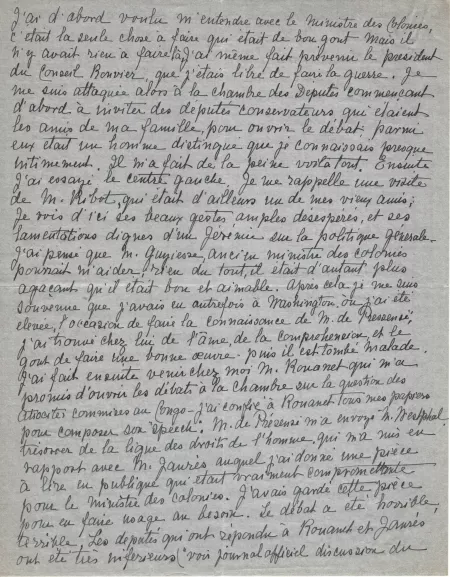 J'ai d'abord voulu m'entendre avec le ministre des Colonies,
c'était la seule chose à faire qui était de bon gout mais il
n'y avait rien à faire là, j'ai même fait prévenir le président
du Conseil Rouvier, que j'étais libre de faire la guerre. Je
me suis attaquée alors à la chambre des Deputés commençant
d'abord à inviter des deputés conservateurs qui étaient
les amis de ma famille, pour ouvrir le débat, parmi
eux était un homme distingué que je connaissais presque
intimement. Il m'a fait de la peine voilà tout. Ensuite
J'ai essayé le centre gauche. Je me rappelle une visite
de M. Ribot, qui était d'ailleurs un de mes vieux amis;
Je vois d'ici ses beaux gestes amples desesperés, et ses
lamentations dignes d'un Jéremie sur la politique générale.
J'ai pensé que M. Guyiesse, ancien ministre des colonies
pourrait m'aider, rien du tout, il était d'autant plus
agaçant qu'il était bon et aimable. Après cela je me suis
souvenue que j'avais eu autrefois à Washington, où j'ai été
elevée, l'occasion de faire la connaissance de M. de Pressensé,
j'ai trouvé chez lui de l'âme, de la comprehension, et le
gout de faire une bonne œuvre. puis il est tombé malade.
J'ai fait ensuite venir chez moi M. Rouanet qui m'a
promis d'ouvrir les débats à la chambre sur la question des
atrocités commises au Congo - j'ai confié à Rouanet tous mes papiers
pour composer son speech. M. de Présensé m'a envoyé M. Westphal
trésorier de la ligue des droits de l'homme, qui m'a mis en
rapport avec M. Jaurès auquel j'ai donné une pièce
à lire en publique qui était vraiment compromettante
pour le ministre des colonies. J'avais gardé cette pièce
pour en faire usage au besoin. Le débat a été horrible,
terrible. Les deputés qui ont répondu à Rouanet et Jaurès
ont été très inférieurs (voir journal officiel discussion du